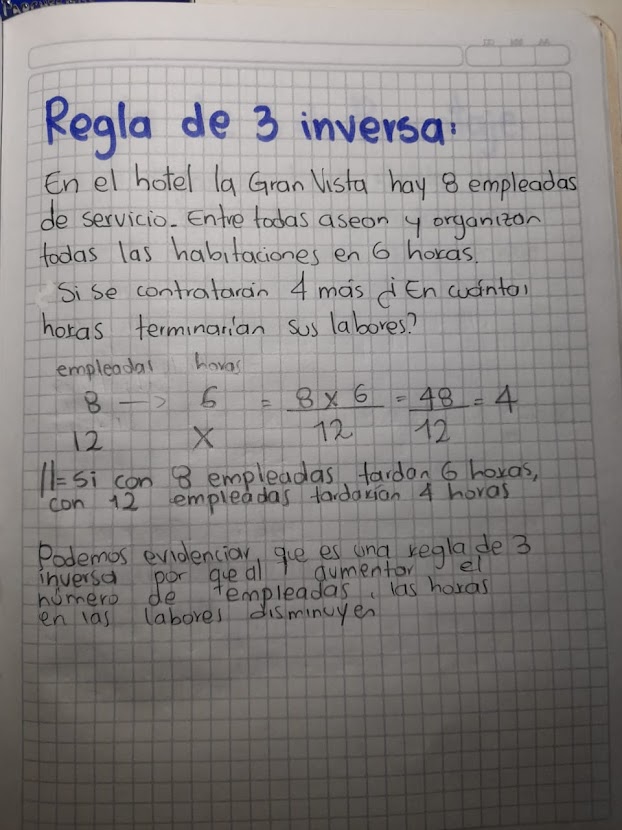 Regla de 3 inversa:
En el hotel la Gran Vista hay 8 empleadas
de servicio. Entre todas aseon y organizan
todas las habitaciones en 6 horas.
Si se contrataran 4 más ¿En cuántas
horas terminarían sus labores?
empleadas horas
8 → 6 = 8 x 6 = 48 = 4
12 X 12 12
11= Si con 8 empleadas tardan 6 horas,
con 12 empleadas tardarían 4 horas
Podemos evidenciar, que es una regla de 3
inversa por que al aumentar el
número de empleadas, las horas
en las labores disminuyen